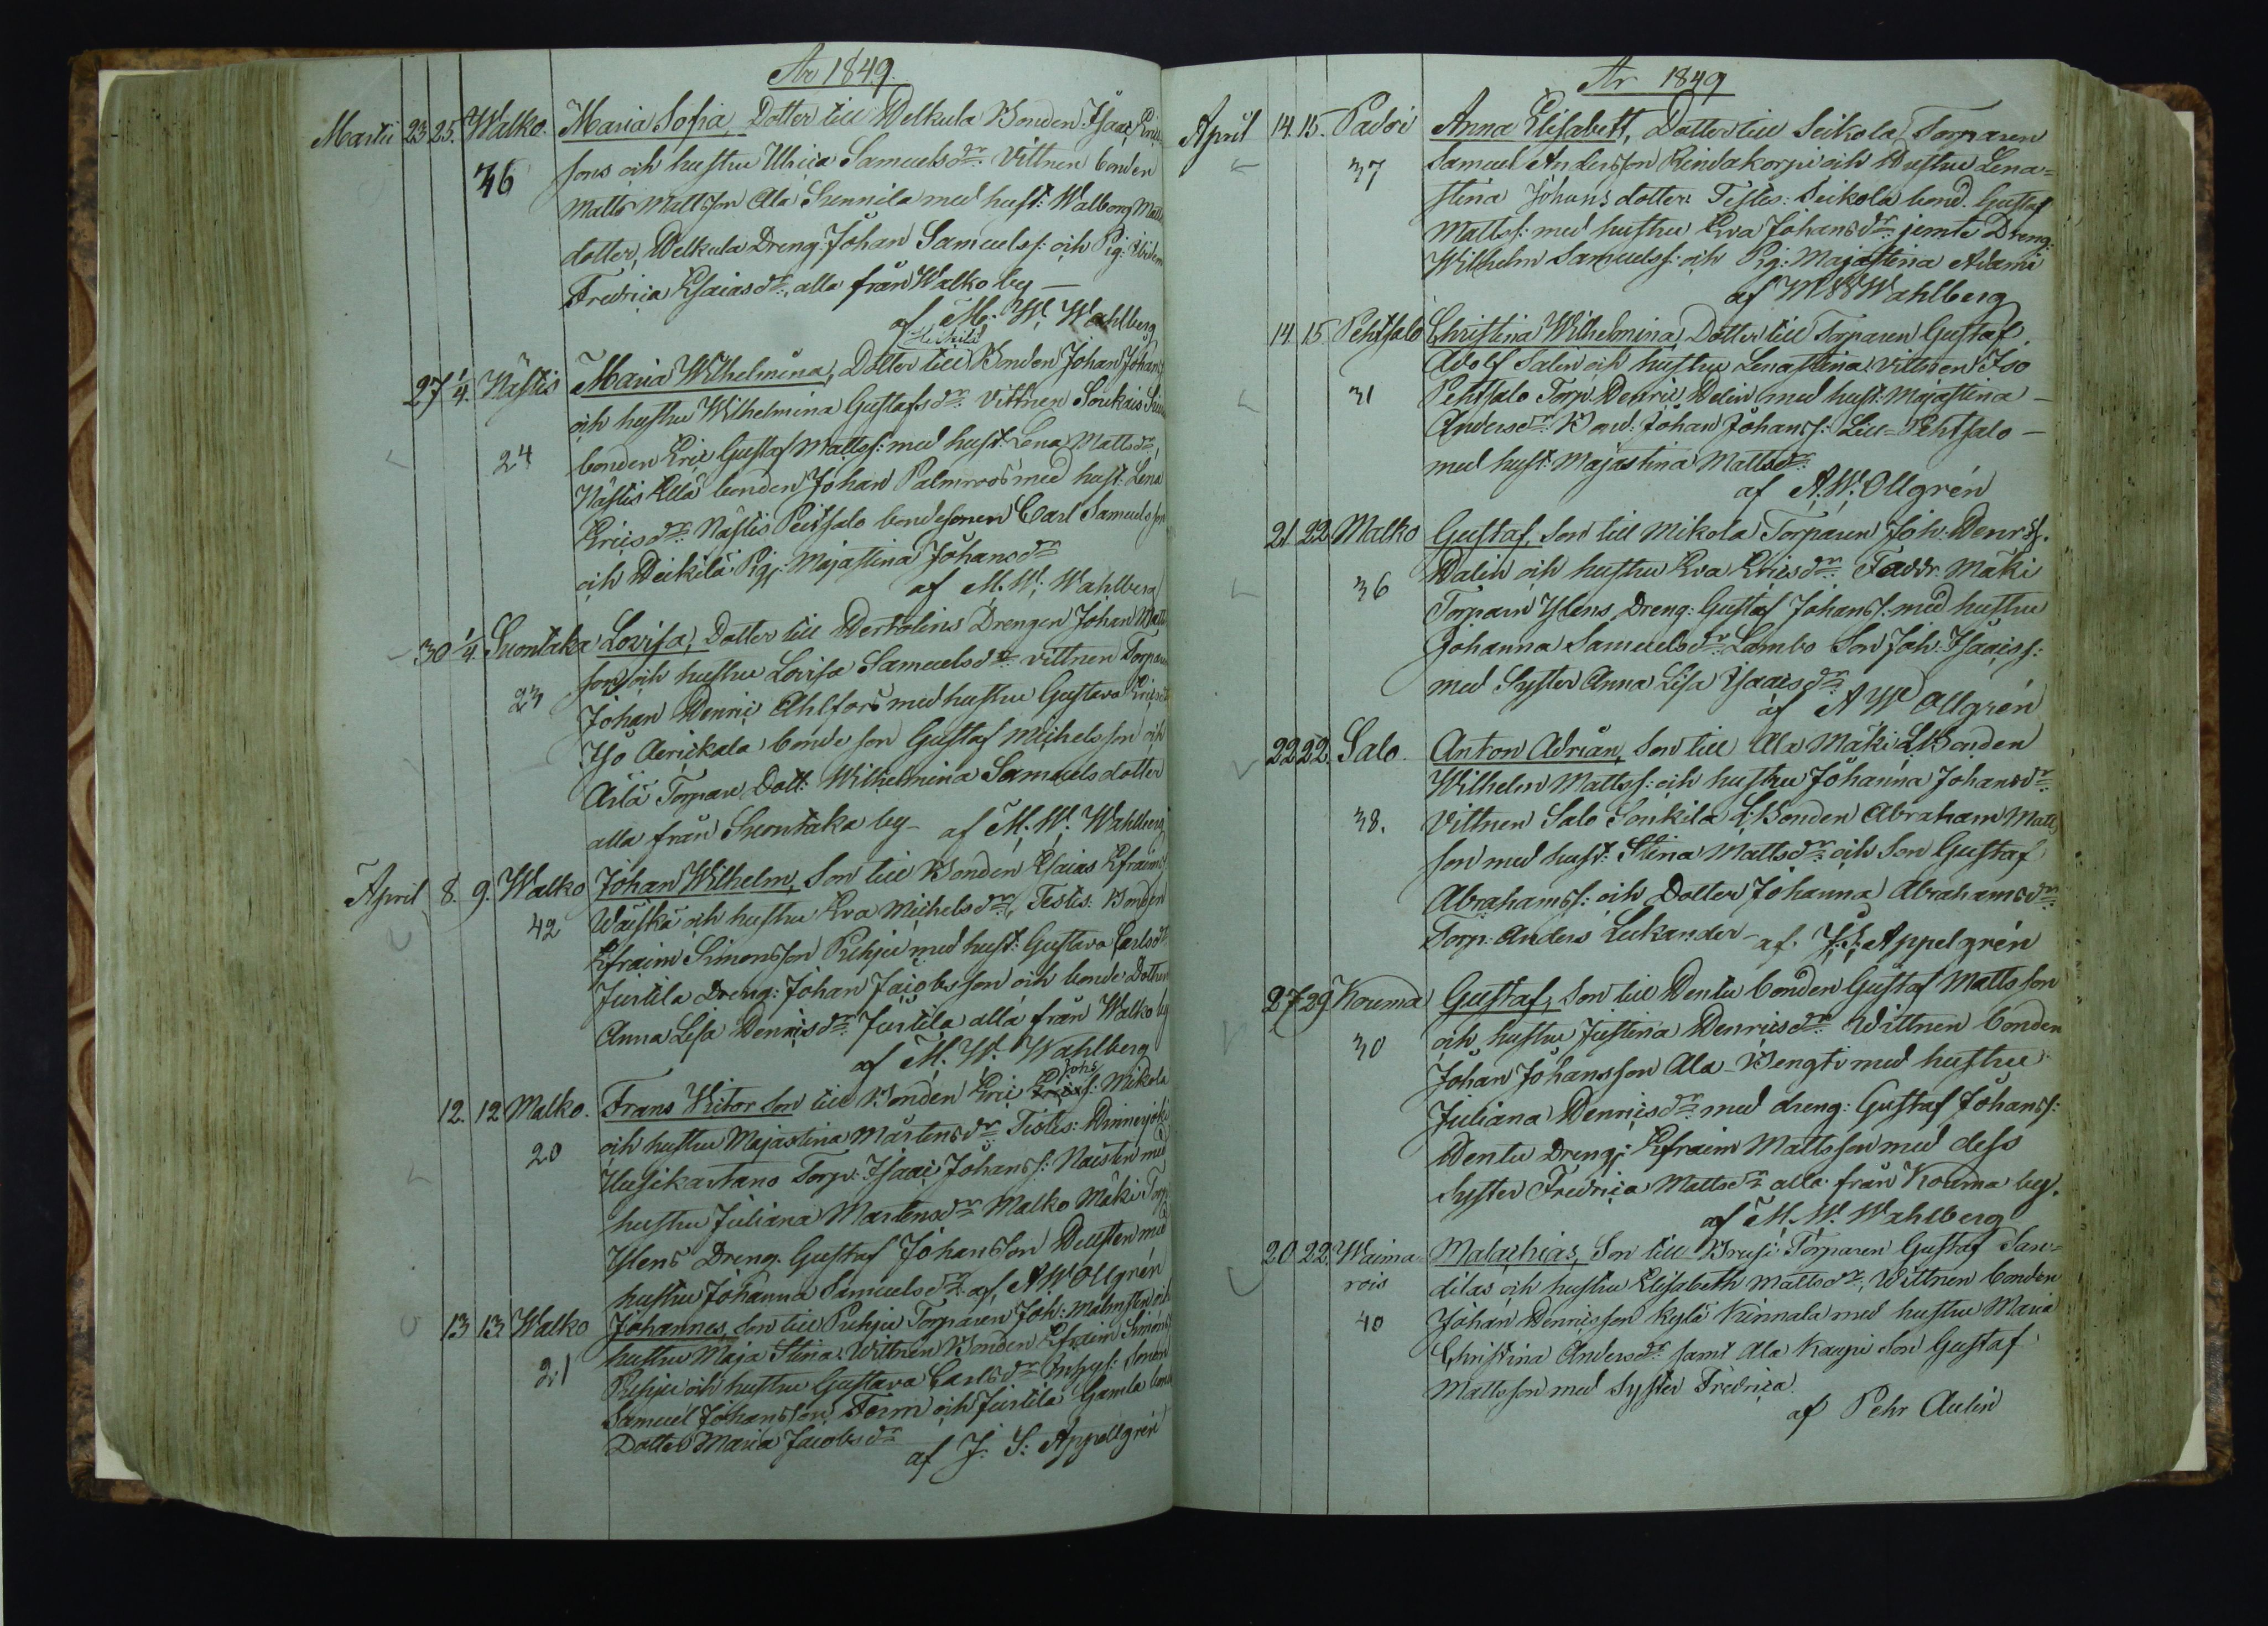 År 1849.
Martii 23 25. Walko. Maria Sofia, Dotter till Welkula Bonden Isaac Erics
36 sons och hustru Ulrica Samuelsdr. Vittnen bonden
Matts Mattsson Ala Sunnila med hust: Walborg Matts
dotter, Welkula Dreng: Johan Samuelss: och Pig:
Fredrica Esaiasdr, alla från Walko by —
af M. W. Wahlberg
Heikilä
27 1/4. Nästis Maria Wilhelmina, Dotter till Bonden Johan Johans
och hustru Wilhelmina Gustafsdr: Vittnen
24 bonden Eric Gustaf Mattss: med hust: Lena Mattsdr,
Nästis Ella bonden Johan Palmroos med hust: Lena
Ericsdr Nästis Peitsalo bondesonen Carl Samuelsson
och Heikilä Pig: Majastina Johansdr
af M. W. Wahlberg
30 1/4. Suontaka Lovisa, Dotter till Hertolinis Drengen Johan Matts
son och hustru Lovisa Samuelsdr vittnen Torparen
23 Johan Henric Ahlfors med hustru Gustava Ericsdr
Iso Aerickala bonde son Gustaf Michelsson och
Arlä Torpare Dott: Wilhelmina Samuels dotter
alla från Suontaka by — af M. W. Wahlberg
April 8. 9. Walko Johan Wilhelm, Son till Bonden Esaias Efraims
42 Wäiskä och hustru Eva Michelsdr, Testes. Bonden
Efraim Simonsson Pihju med hust: Gustava Carlsdr
Justila Dreng: Johan Jacobsson och bonde Dotter
Anna Lisa Henricsdr Justila alla från Walko by
af M. W. Wahlberg
Johs
12. 12 Malko. Frans Victor Son till Bonden Eric Erics: Mikola
20 och hustru Majastina Mårtensdr Testes: Hinnerjoki
Uusikartano Torp: Isaac Johanss: Naisten med
hustru Juliana Mårtensdr Malko Mäki Torp
Ylens Dreng. Gustaf Johansson Hellsten med
hustru Johanna Samuelsdr. af A. W. Ollgrén
13 13 Walko Johannes, Son till Pihju Torparen Joh: Malmsten och
21 hustru Maja Stina. Wittnen Bonden Efraim Simonss
Pihju och hustru Gustava Carlsdr Sonen
Samuel Johansson Form och Justila Gamla bonde
Dotter Maria Jacobsdr
af J. S. Appellgrén
År 1849
April 14. 15. Padoi Anna Elisabett, Dotter till Seikola Torparen
37 Samuel Andersson Rindakorpi och Hustru Lena=
stina Johans dotter. Testes: Seikola bond. Gustaf
Mattss: med hustru Eva Johansdr: jemte Dreng:
Wilhelm Samuelss: och Pig: Majastina Adami
af M W Wahlberg
14. 15 Pehtsalo Christina Wilhelmina, Dotter till Torparen Gustaf
Adolf Salin och hustru Lenastina. vittnen Iso
31 Pehtsalo Torp: Henric Helin med hust: Majastina —
Andersdr. Bond: Johan Johanss: Lill=Pehtsalo —
med hust: Majastina Mattsdr:
af A. W. Ollgrén
21. 22 Malko Gustaf, Son till Mikola Torparen Joh: Henrss.
36 Dalin och hustru Eva Ericsdr: Faddr. Mäki
Torparn Ylens Dreng: Gustaf Johanss: med hustru
Johanna Samuelsdr: Lambo Son Joh: Isaacss:
med Syster Anna Lisa Isaacsdr
af A W Ollgrén
22 22. Salo. Anton Adrian, Son till Ala Mäki L:Bonden
Wilhelm Mattss: och hustru Johanna Johansdr:
38. Vittnen Salo Sonkila L:Bonden Abraham Matts
son med hust: Stina Mattsdr: och Son Gustaf
Abrahamss: och Dotter Johanna Abrahamsdr:
Torp: Anders Leekander — af. J. S. Appelgrén
27 29 Kouma Gustaf, Son till Hentu bonden Gustaf Mattsson
30 och hustru Justina Henricsdr: Wittnen bonden
Johan Johansson Ala Bengti med hustru
Juliana Henricsdr. med dreng: Gustaf Johanss:
Hentu Dreng: Efraim Mattsson med dess
Syster Fredrica Mattsdr alla från Kouma by.
af M. W. Wahlberg
20 22. Waima= Malachias, Son till Krusi Torparen Gustaf San=
rois dilas och hustru Elisabeth Mattsdr, Wittnen bonden
40 Johan Henricsson Kylä Kinnala med hustru Maria
Christina Andersdr: samt Ala Kaupi Son Gustaf
Mattsson med Syster Fredrica.
af Pehr Aulin